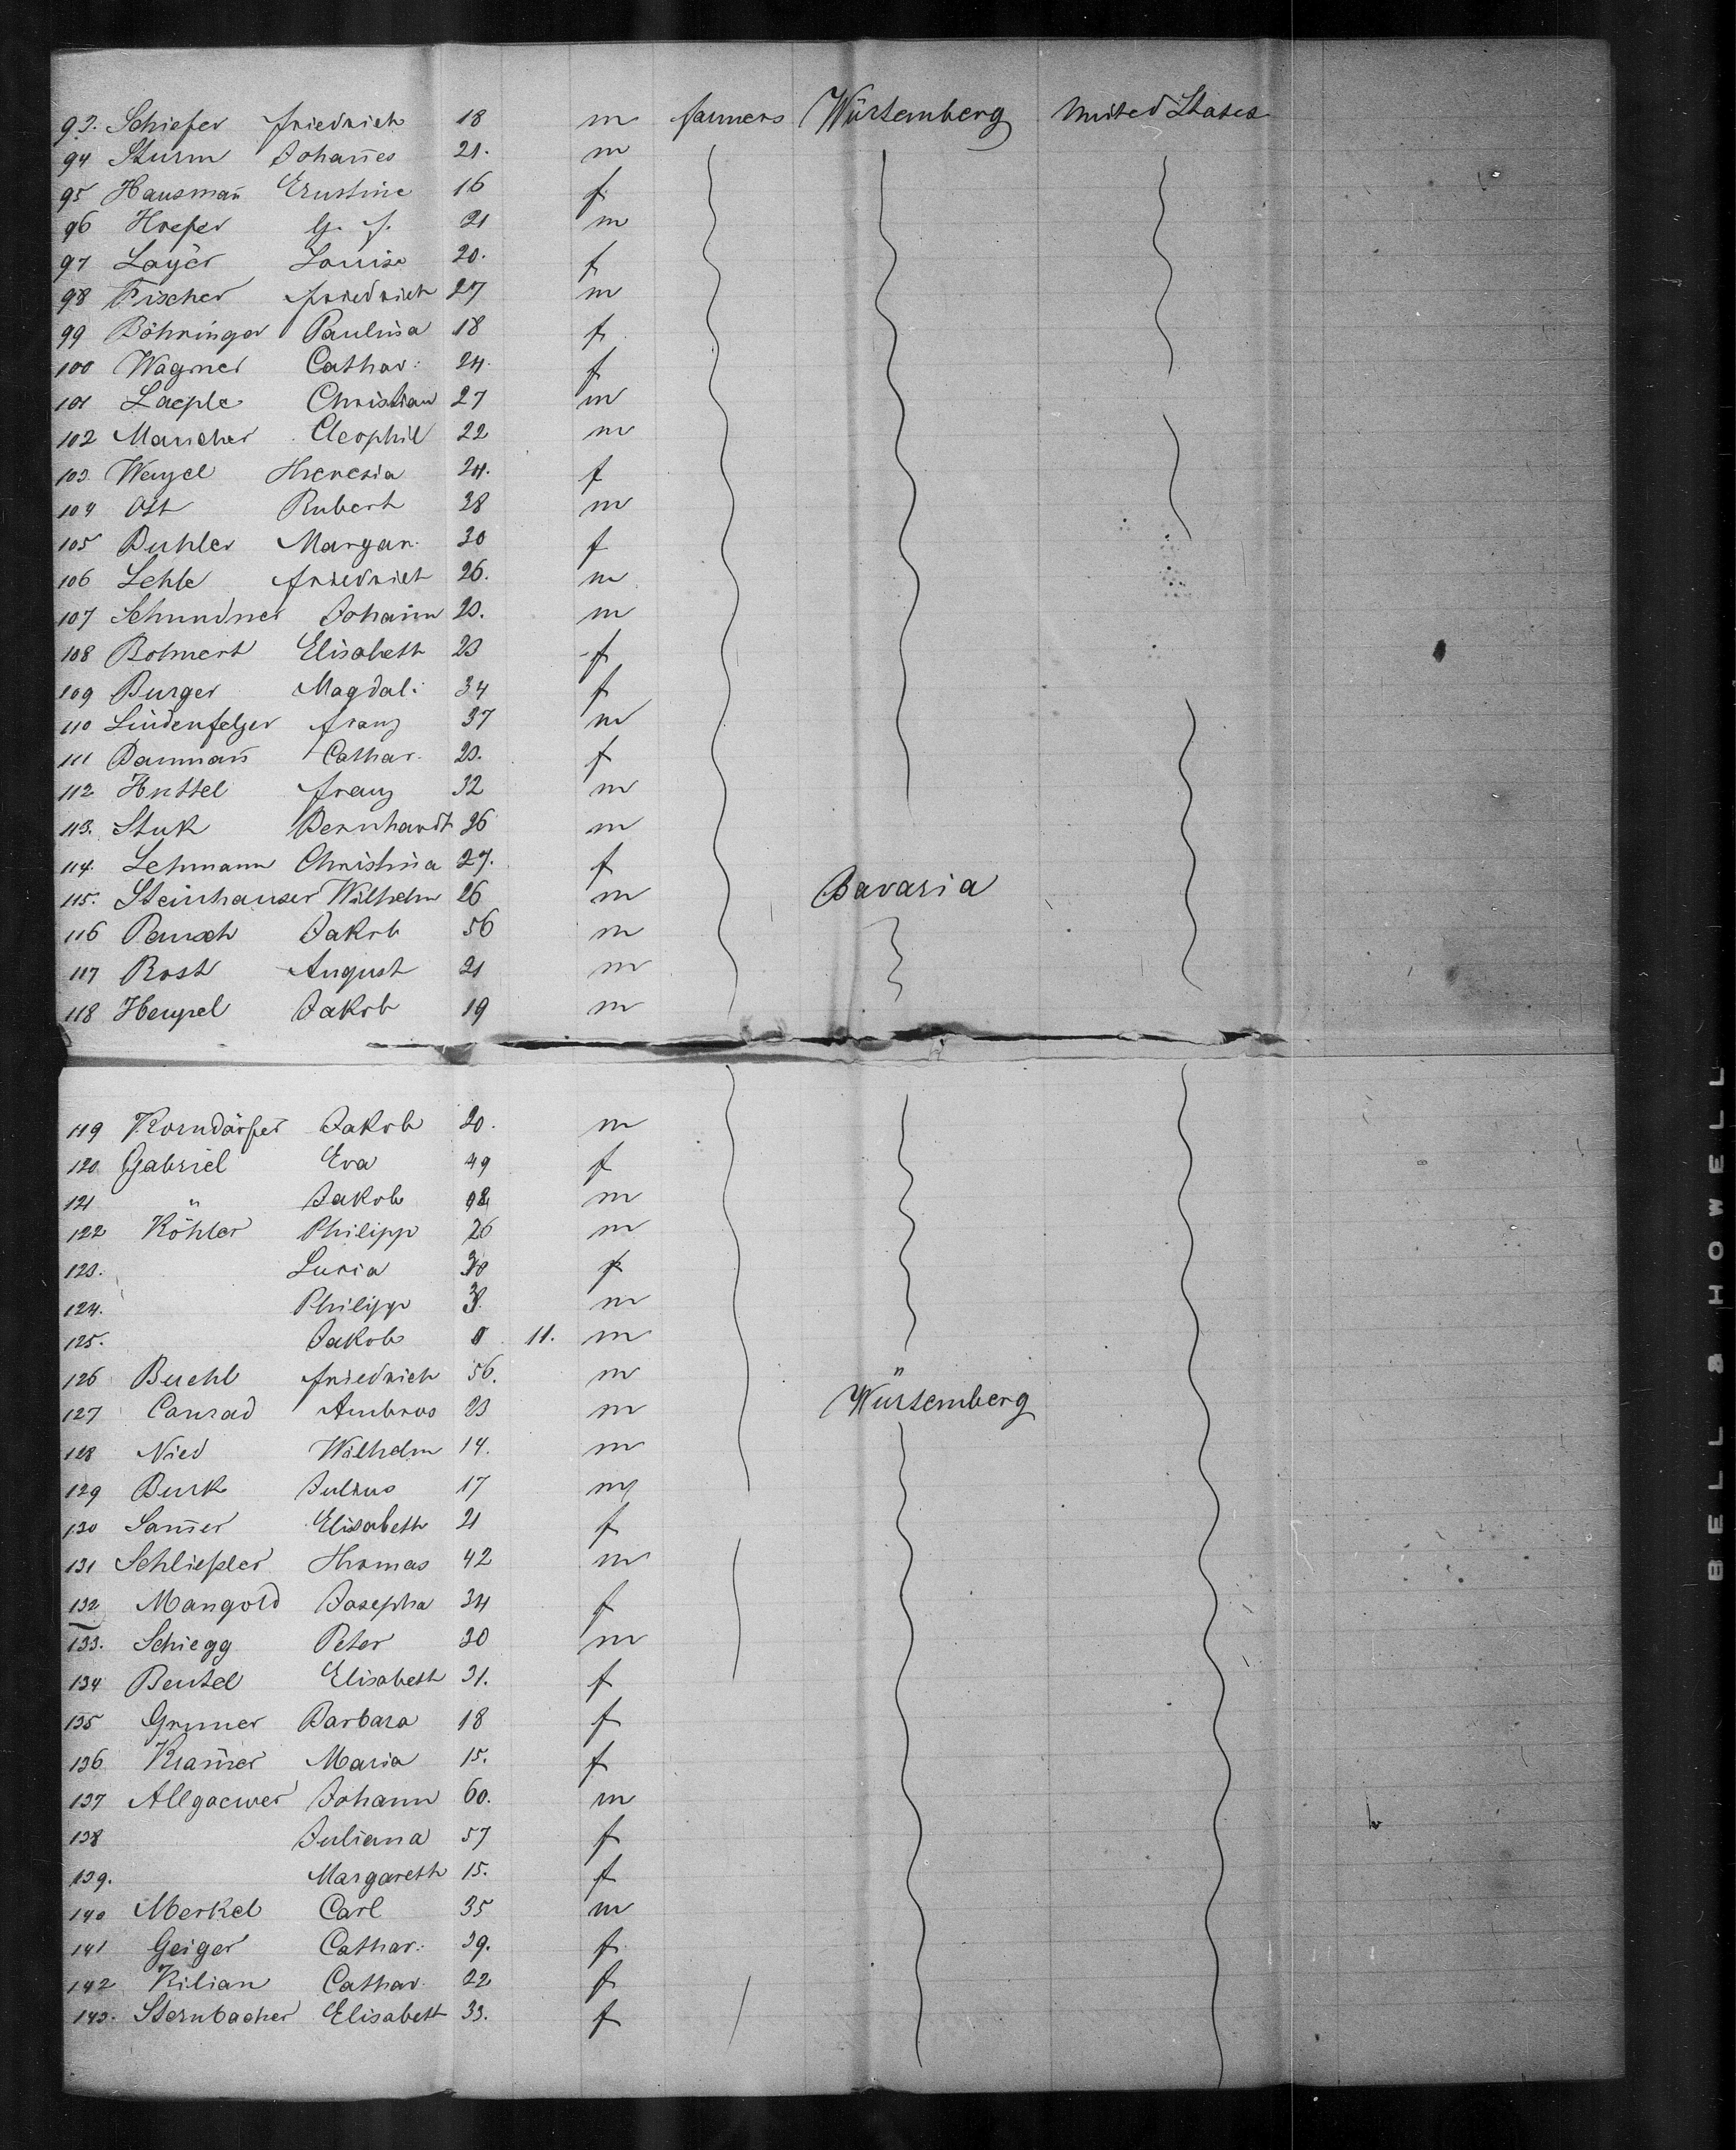 93. Schiefer Friedrich 18 m farmers Würtemberg United States
94 Sturm Johan̄es 21. m
95 Hausman̄ Ernstine 16 f
96 Hoefer G. F. 21 m
97 Layer Louise 20. f
98 Fischer Friedrich 27 m
99 Böhringer Paulina 18 f
100 Wagner Cathar: 24. f
101 Laeple Christian 27 m
102 Maucher Cleophil 22 m
103. Wenzel Theresia 24. f
104 Ott Rubert 28 m
105 Buhler Margar. 30 f
106 Lehle Friedrich 26. m
107 Schundner Johann 23. m
108 Bohnert Elisabeth 23 f
109 Burger Magdal: 34 f
110 Lindenfelzer Franz 37 m
111 Bauman̄ Cathar. 23. f
112 Huttel Franz 32 m
113. Stuk Bernhardt 26 m
114. Lehmann Christina 27. f
115. Steinhauser Wilhelm 26 m Bavaria
116 Pausch Jakob 56 m
117 Rost August 21 m
118 Hempel Jakob 19 m
119 Korndörfer Jakob 20. m
120 Gabriel Eva 49 f
121 " Jakob 98 m
122 Köhler Philipp 26 m
123. Luria 30 f
124. Philipp 3. m
125. Jakob 0 11. m
126 Buehl Friedrich 56. m "
127 Conrad Ambros 23 m Würtemberg
128 Nied Wilhelm 14. m
129 Burk Julius 17 m
130 Sam̄er Elisabeth 21 f
131 Schließler Thomas 42 m
132 Mangold Josepha 34 f
133. Schiegg Peter 30 m
134 Beutel Elisabeth 31. f
135 Gruner Barbara 18 f
136 Kram̄er Maria 15. f
137 Allgaewer Johann 60. m
138 Juliana 57 f
139. Margareth 15. f
140 Merkel Carl 35 m
141 Geiger Cathar: 39. f
142 Kilian Cathar. 22 f
143. Sternbacher Elisabeth 33. f
BELL & HOWELL